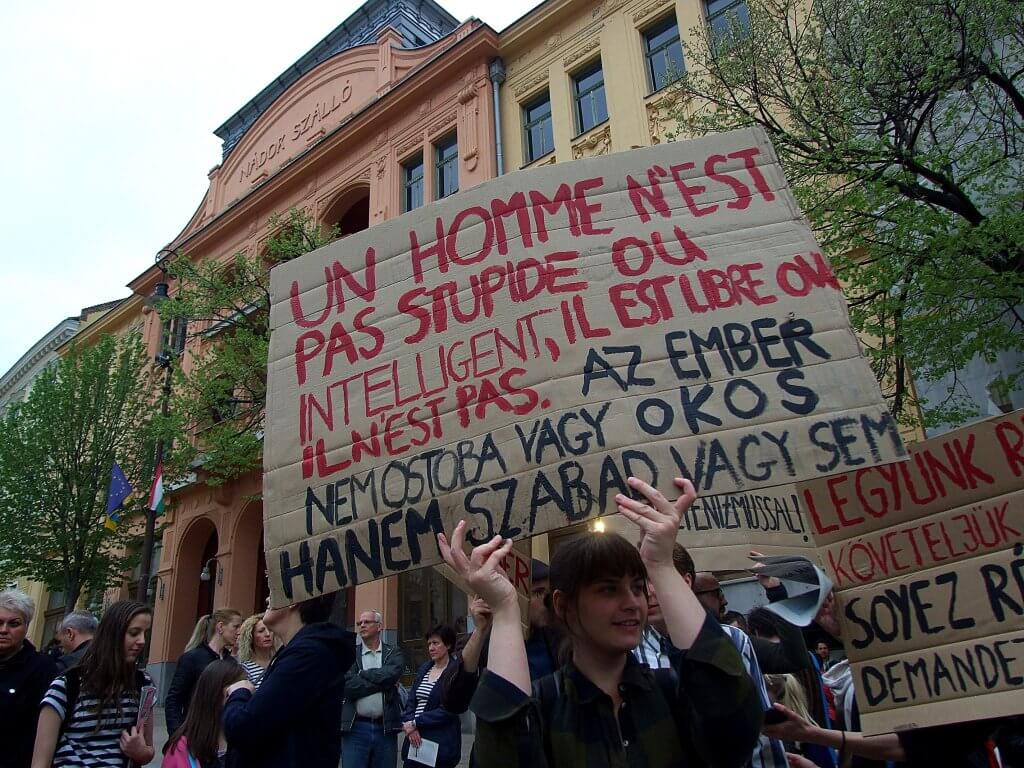 NÁDOR SZÁLLÓ
UN HOMME N'EST
PAS STUPIDE OU
INTELLIGENT, IL EST LIBRE OU
IL N'EST PAS.
AZ EMBER
NEM OSTOBA VAGY OKOS
HANEM SZABAD VAGY SEM
LEGYÜNK R
KÖVETELJÜK
SOYEZ RÉ
DEMANDEZ